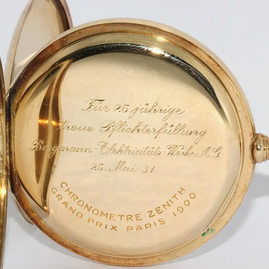 Für 25 jährige
treue Pflichterfüllung
Bergmann-Elektricitäts-Werke A.G.
25. Mai 31
CHRONOMETRE ZENITH
GRAND PRIX PARIS 1900